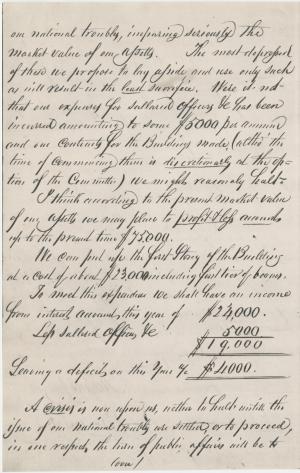 our national troubles, impairing seriously the
market value of our assetts. The most depressed
of these we propose to lay aside and use only such
as will result in the least sacrifice. Were it not
that our expenses for Sallaried officers &c has been
incurred amounting to some $5000 per annum
and our Contracts for the Buildings made (altho the
time of Commencing them is discretionary at the op-
tion of the Committee) we might reasonably halt-
I think according to the present market value
of our assetts we may place to profit & loss account
up to the present time $75,000.
We can put up the first Story of the Building
at a cost of about $23,000 including first tier of beams.
To meet this expenditure we shall have an income
from interest account, this year of $24,000.
Less Sallaried officers &c 5000
$19,000
Leaving a deficit on this Year of $4000.
A crisis is now upon us, either to halt until the
issue of our national troubles are settled, or to proceed,
in one respect, the turn of public affairs will be to